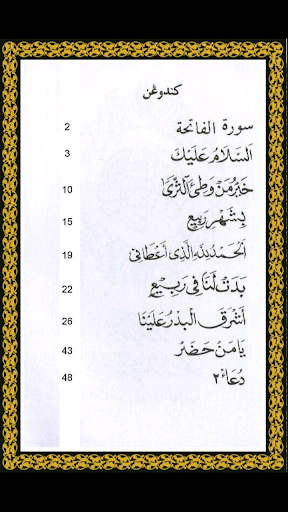 كندوڠن
سورة الفاتحة 2
اَلسَّلَامُ عَلَيْكَ 3
خَيْرُ مَنْ وَطِئَ الثَّرَىٰ 10
بِشَهْرِ رَبِيعٍ 15
اَلْحَمْدُ لِلّٰهِ الَّذِي أَعْطَانِي 19
بَدَتْ لَنَا فِي رَبِيعٍ 22
أَشْرَقَ الْبَدْرُ عَلَيْنَا 26
يَا مَنْ حَضَرْ 43
دُعَاء ٢ 48